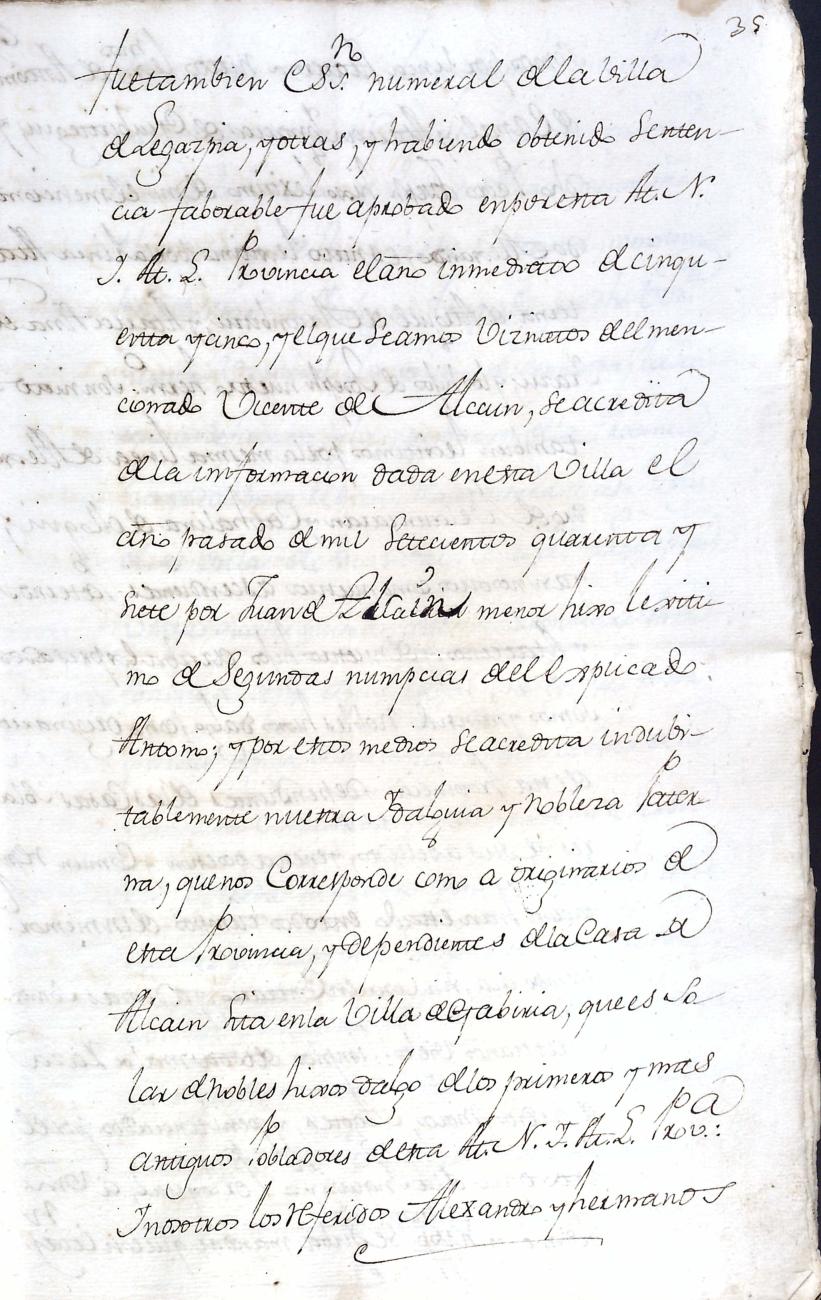 35
fue tambien Essno. numeral de la Villa
de Legazpia, y otras, y habiendo obtenido Senten-
cia faborable fue aprobado en por esta M. N.
I. M. L. Provincia el año inmediato de cinqu-
enta y cinco, y el que Seamos Viznietos del men-
cionado Vicente de Alcain, se acredita
de la informacion dada en esta Villa el
año pasado de mil Setecientos quarenta y
siete por Juan de Alcain menor hixo lexiti
mo de Segundas numpcias del Explicado
Antonio; y por estos medios se acredita indubi-
tablemente nuestra Idalguia y Nobleza Pater
na, que nos Corresponde como a originarios de
esta Provincia, y dependientes de la Casa de
Alcain Sita en la Villa de Gabiria, que es So
lar de Nobles hixos dalgo de los primeros y mas
antiguos Pobladores de esta M. N. I. M. L. Prov.a:
I nosotros los referidos Alexandro y hermanos